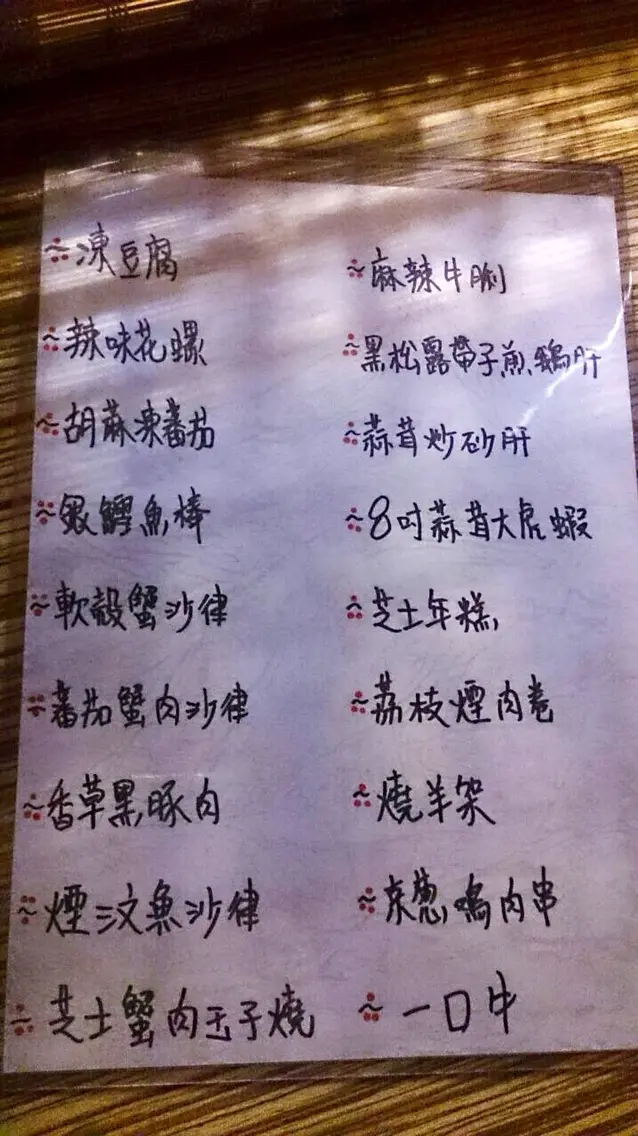 凍豆腐
辣味花螺
胡麻凍蕃茄
銀鱈魚棒
軟殼蟹沙律
蕃茄蟹肉沙律
香草黑豚肉
煙三文魚沙律
芝士蟹肉玉子燒
麻辣牛脷
黑松露帶子魚鵝肝
蒜茸炒砂肝
8吋蒜茸大虎蝦
芝士年糕
荔枝煙肉卷
燒羊架
京蔥鴨肉串
一口牛